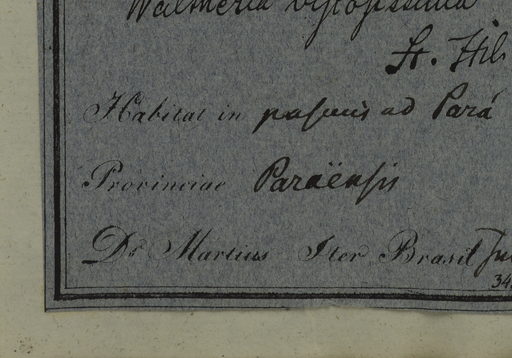 Waltheria viscosissima
St. Hil
Habitat in pascuis ad Pará
Provinciae Paraënsis
Dr. Martius Iter Brasil
34